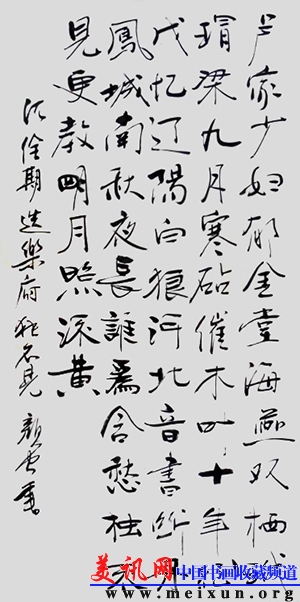 卢家少妇郁金堂海燕双栖玳
瑁梁九月寒砧催木叶十年征
戍忆辽阳白狼河北音書断丹
鳳城南秋夜長誰爲含愁独不
見更教明月照流黄
沈佺期 樂府独不見 顏 書
美讯网 中国书画收藏频道
www.meixun.org